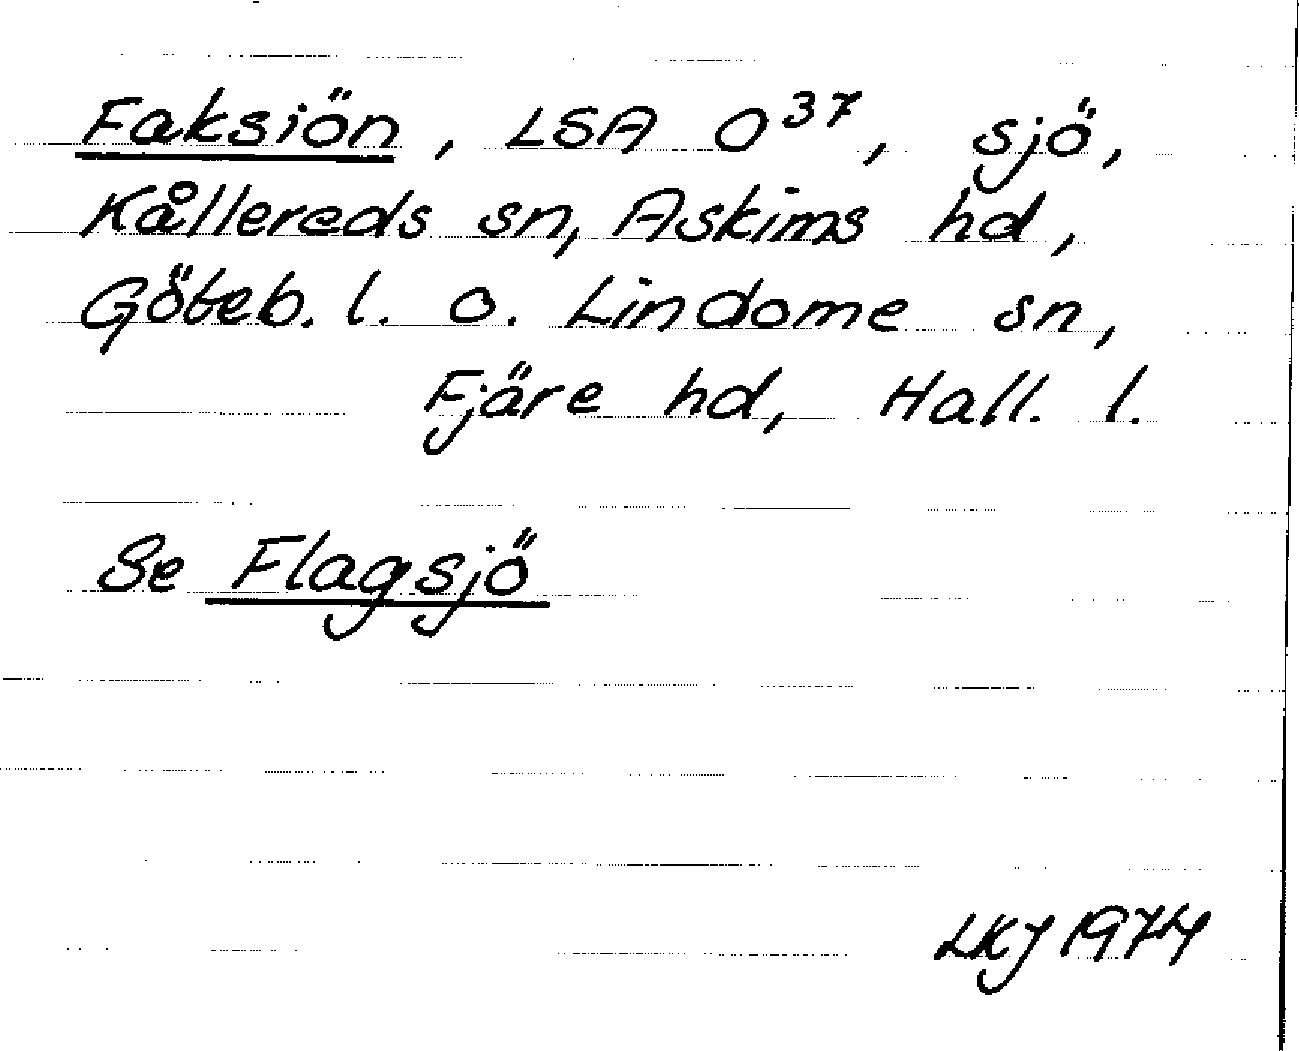 Faksiön, LSA O³⁷, sjö,
Kållereds sn, Askims hd,
Göteb. l. o. Lindome sn,
Fjäre hd, Hall. l.
Se Flagsjö
LKJ 1974